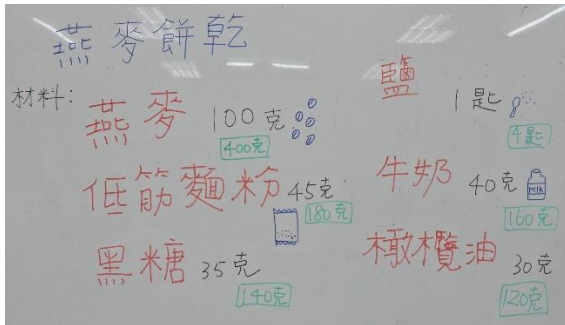 燕麥餅乾
材料:
燕麥 100克
400克
低筋麵粉 45克
180克
黑糖 35克
140克
鹽 1匙
4匙
牛奶 40克 MILK
160克
橄欖油 30克
120克